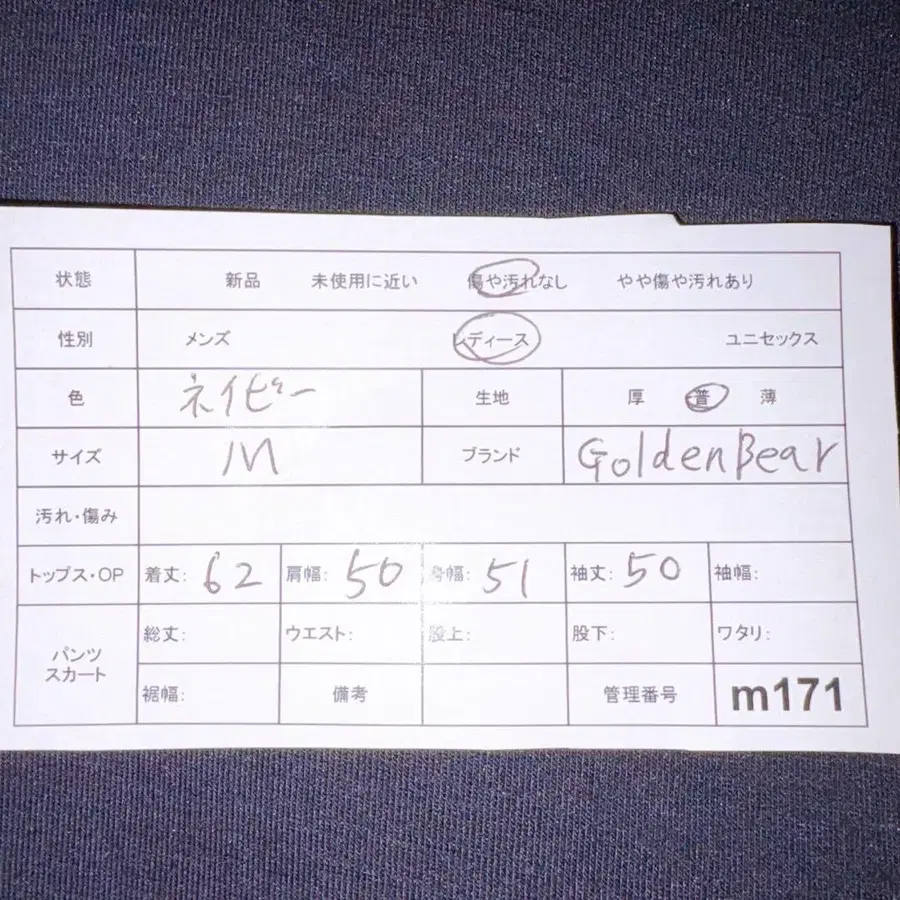 状態 新品 未使用に近い 傷や汚れなし やや傷や汚れあり
性別 メンズ レディース ユニセックス
色 ネイビー 生地 厚 普 薄
サイズ M ブランド GoldenBear
汚れ・傷み
トップス・OP 着丈: 62 肩幅: 50 身幅: 51 袖丈: 50 袖幅:
パンツ スカート 総丈: ウエスト: 股上: 股下: ワタリ:
裾幅: 備考 管理番号 m171